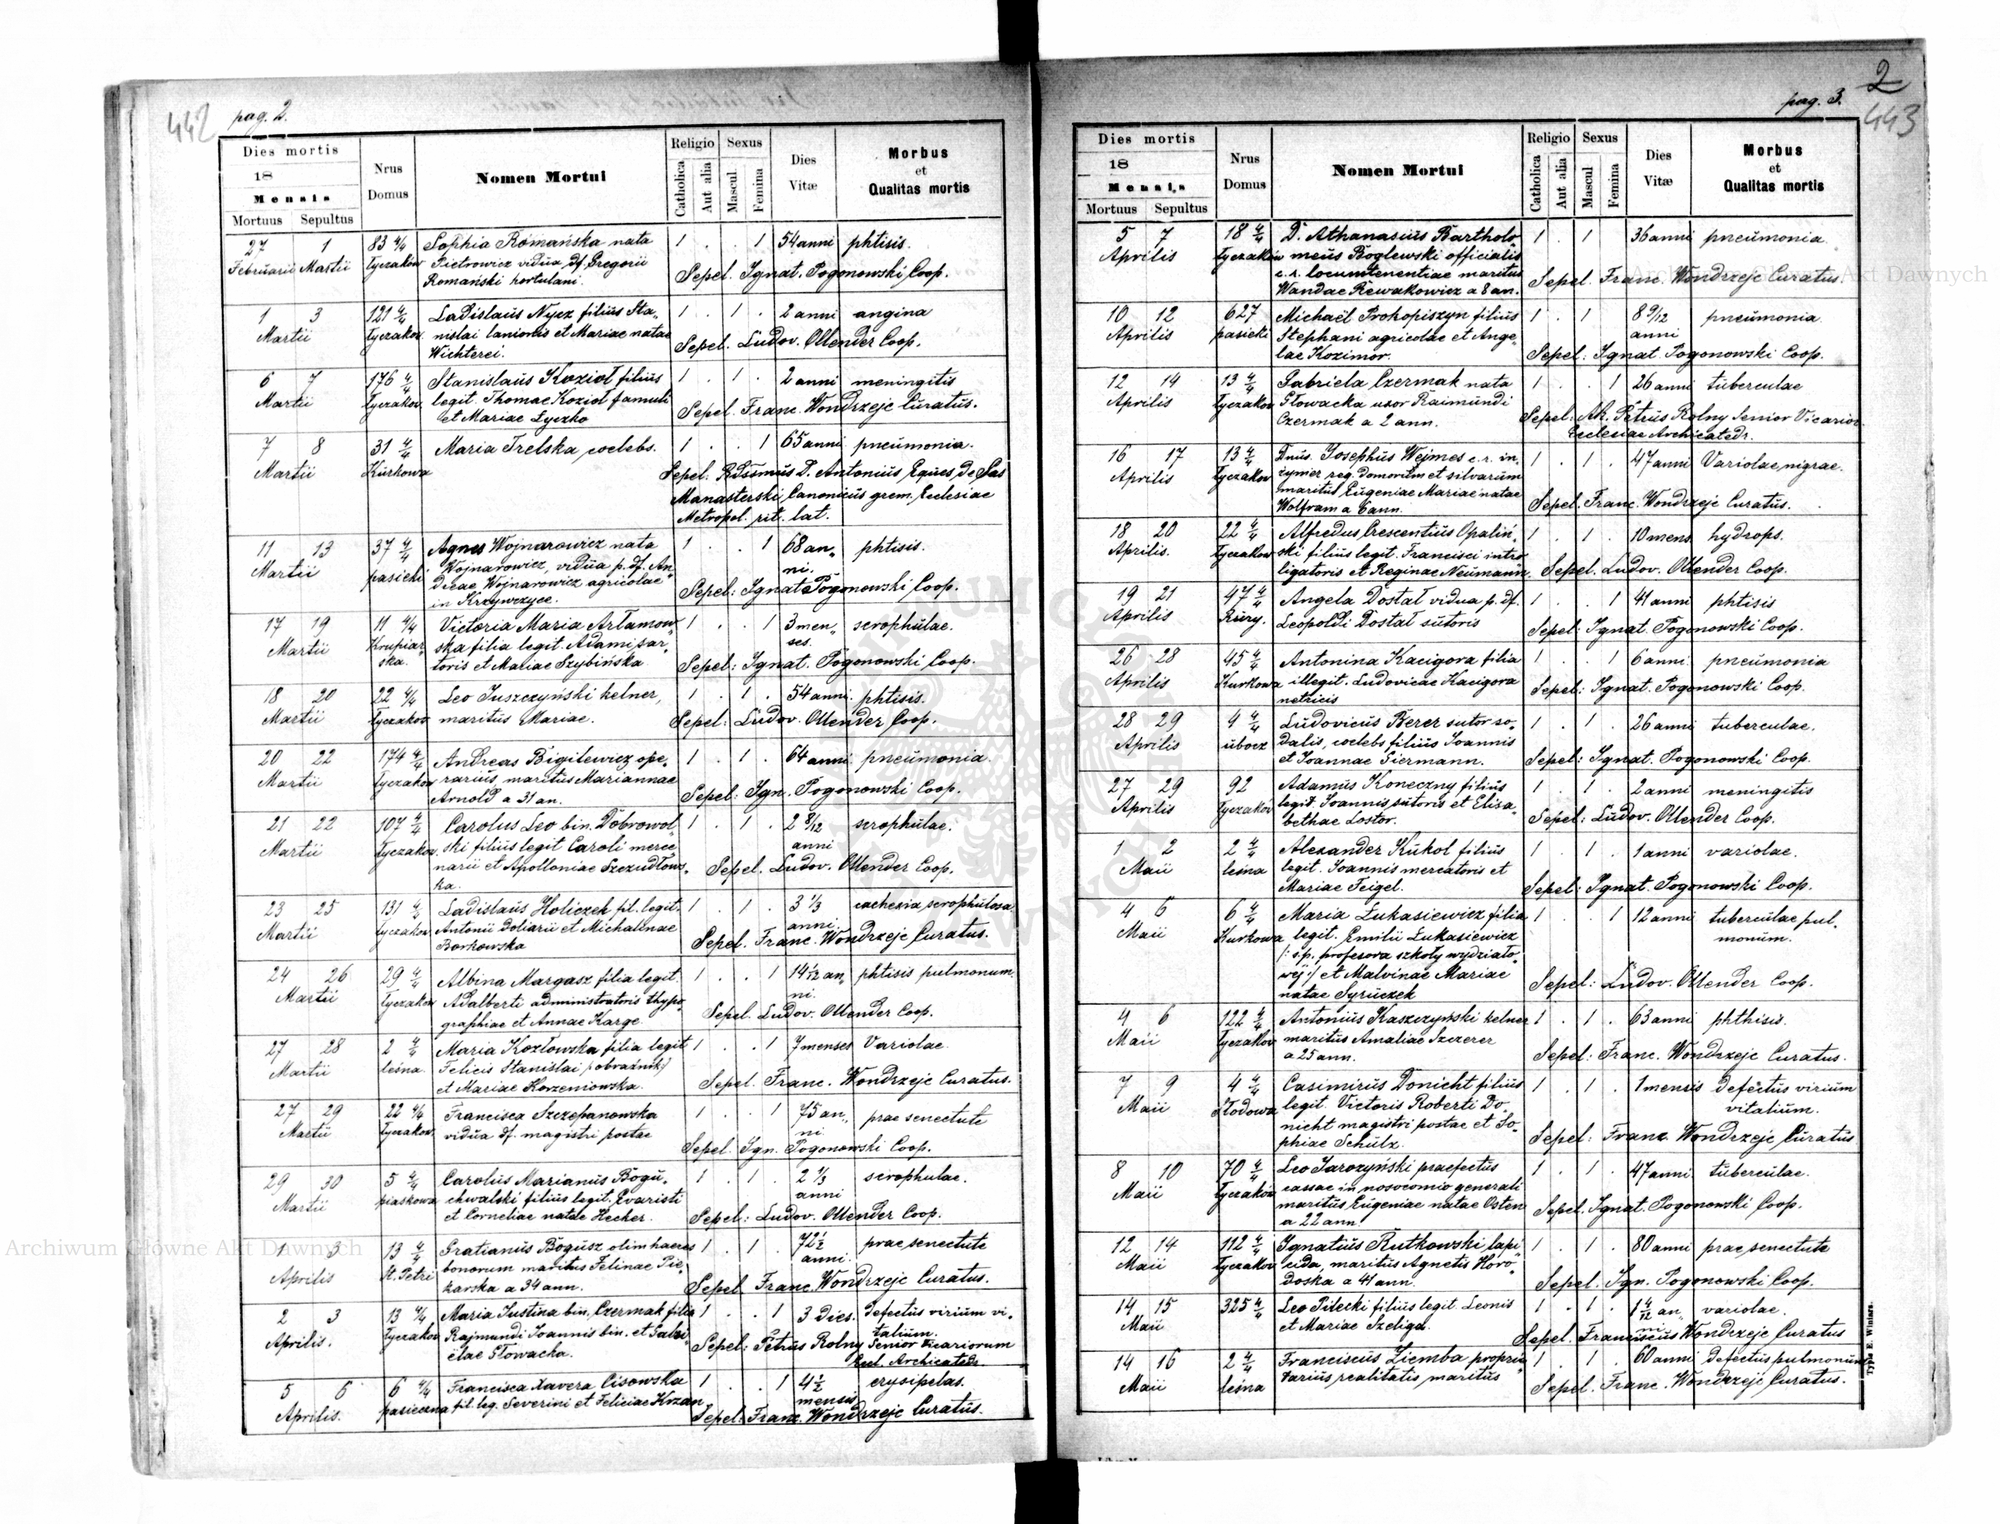 442
pag. 2.
Dies mortis
18
Mensis
Mortuus Sepultus
Nrus
Domus
Nomen Mortui
Religio
Catholica
Aut alia
Sexus
Mascul
Femina
Dies
Vitæ
Morbus
et
Qualitas mortis
27 1 83 4/4 Sophia Romańska nata 1 . . 1 54 anni phtisis.
Februarii Martii Łyczaków Pietrowicz vidua df. Gregorii
Romański hortulani.
Sepel. Ignat. Pogonowski Coop.
1 3 121 4/4 Ladislaus Nycz filius Sta„ 1 . 1 . 2 anni angina
Martii Łyczakow. nislai lanionis et Mariae natae
Wichterei.
Sepel. Ludov. Ollender Coop.
6 7 176 4/4 Stanislaus Kozioł filius 1 . 1 . 2 anni meningitis
Martii Łyczakow. legit. Thomae Kozioł famuli
et Mariae Łyczko
Sepel. Franc. Wondrzeje Curatus.
7 8 31 4/4 Maria Trelska coelebs. 1 . . 1 65 anni pneumonia.
Martii Kurkowa
Sepel. Rdissimus D. Antonius Eques de Sas
Manasterski, Canonicus grem. Ecclesiae
Metropol. rit. lat.
11 13 37 4/4 Agnes Wojnarowicz nata 1 . . 1 68 an„ phtisis.
Martii pasieki Wojnarowicz, vidua p. df. An„ ni.
dreae Wojnarowicz agricolae
in Krzywczyce.
Sepel: Ignat Pogonowski Coop.
17 19 11 4/4 Victoria Maria Artamow„ 1 . . 1 3 men„ scrophulae.
Martii Krupiar„ ska filia legit. Adami sar„ ses.
ska. toris et Mariae Szybińska
Sepel: Ignat. Pogonowski Coop.
18 20 22 4/4 Leo Juszczyński kelner, 1 . 1 . 54 anni. phtisis.
Martii Łyczakow. maritus Mariae.
Sepel: Ludov. Ollender Coop.
20 22 174 4/4 Andreas Bigilewicz ope„ 1 . 1 . 64 anni pneumonia.
Martii Łyczakow rarius maritus Mariannae
Arnold a 31 an.
Sepel: Ign. Pogonowski Coop.
21 22 107 4/4 Carolus Leo bin. Dobrowol„ 1 . 1 . 2 8/12 scrophulae.
Martii Łyczakow. ski filius legit Caroli merce anni
narii et Apolloniae Szczudłows„
ka.
Sepel. Ludov. Ollender Coop.
23 25 131 4/4 Ladislaus Holiczek fil. legit. 1 . 1 . 3 1/3 cachexia scrophulosa
Martii Łyczakow. Antonii doliarii et Michalinae anni.
Borkowska
Sepel. Franc. Wondrzeje Curatus.
24 26 29 4/4 Albina Margasz filia legit. 1 . . 1 14 1/12 an„ phtisis pulmonum.
Martii Łyczakow Adalberti administratoris thypo„ ni.
graphiae et Annae Karge.
Sepel. Ludov. Ollender Coop.
27 28 2 4/4 Maria Kozłowska filia legit 1 . . 1 7 menses Variolae.
Martii leśna. Felicis Stanislai /:obraźnik:/
et Mariae Korzeniowska.
Sepel: Franc. Wondrzeje Curatus.
27 29 22 4/4 Francisca Szczepanowska 1 . . 1 75 an„ prae senectute
Martii Łyczakow. vidua df. magistri postae ni
Sepel: Ign. Pogonowski Coop.
29 30 5 4/4 Carolus Marianus Bogu„ 1 . 1 . 2 1/3 scrophulae.
Martii piaskowa chwalski filius legit. Evaristi anni
et Corneliae natae Hecher.
Sepel: Ludov. Ollender Coop.
1 3 13 4/4 Gratianus Bogusz olim haeres 1 . 1 . 72 1/2 prae senectute
Aprilis St. Petri bonorum maritus Felinae Pie„ anni.
karska a 34 ann.
Sepel Franc Wondrzeje Curatus.
2 3 13 4/4 Maria Justina bin. Czermak filia 1 . . 1 3 dies. defectus virium vi„
Aprilis. Łyczakow Rajmundi Joannis bin. et Gabri talium.
elae Słowacka.
Sepel: Petrus Rolny Senior Vicariorum
Eccl. Archicatedr.
5 6 6 4/4 Francisca Xavera Cisowska 1 . . 1 4 1/2 erysipelas.
Aprilis. pasieczna fil. leg. Severini et Feliciae Krzan mensis
Sepel: Franc. Wondrzeje Curatus.
2
pag. 3.
443
Dies mortis
18
Mensis
Mortuus Sepultus
Nrus
Domus
Nomen Mortui
Religio
Catholica
Aut alia
Sexus
Mascul
Femina
Dies
Vitæ
Morbus
et
Qualitas mortis
5 7 18 4/4 D. Athanasius Bartholo„ 1 . 1 36 anni pneumonia
Aprilis Łyczakow meus Roglewski officialis
c. r. locumtenentiae maritus
Wandae Rewakowicz a 8 an.
Sepel. Franc. Wondrzeje Curatus.
10 12 627 Michaël Prokopiszyn filius 1 . 1 8 9/12 pneumonia
Aprilis pasieki Stephani agricolae et Ange„ anni
lae Kozimor.
Sepel: Ignat. Pogonowski Coop.
12 14 13 4/4 Gabriela Czermak nata 1 . . 1 26 anni tuberculae
Aprilis Łyczakow Słowacka uxor Raimundi
Czermak a 2 ann.
Sepel: Ak. Petrus Rolny Senior Vicarior.
Ecclesiae Archicatedr.
16 17 13 4/4 Dnus. Josephus Wejmes c. r. in„ 1 . 1 . 47 anni Variolae nigrae.
Aprilis Łyczakow żymer reg. domonium et silvarum
maritus Eugeniae Mariae natae
Wolfram a 6 ann.
Sepel: Franc. Wondrzeje Curatus.
18 20 22 4/4 Alfredus Crescentius Opaliń„ 1 . 1 . 10 mens. hydrops.
Aprilis. Łyczakow ski filius legit. Francisci intro
ligatoris et Reginae Neumann.
Sepel: Ludov. Ollender Coop.
19 21 47 4/4 Angela Dostal vidua p. df. 1 . . 1 41 anni phtisis
Aprilis Rury. Leopoldi Dostal sutoris
Sepel: Ignat. Pogonowski Coop.
26 28 45 4/4 Antonina Kacigora filia 1 . . 1 6 anni pneumonia
Aprilis Kurkowa illegit. Ludovicae Kacigora
netricis
Sepel: Ignat. Pogonowski Coop.
28 29 4 4/4 Ludovicus Berer sutor so„ 1 . 1 . 26 anni tuberculae.
Aprilis ubocz dalis, coelebs filius Joannis
et Joannae Siermann.
Sepel: Ignat. Pogonowski Coop.
27 29 92 Adamus Koneczny filius 1 . 1 . 2 anni meningitis
Aprilis Łyczakow legit. Joannis sutoris et Elisa„
bethae Lostor.
Sepel: Ludov. Ollender Coop.
1 2 2 4/4 Alexander Kukol filius 1 . 1 . 1 anni variolae.
Maii leśna legit. Joannis mercatoris et
Mariae Feigel.
Sepel: Ignat. Pogonowski Coop.
4 6 6 4/4 Maria Łukasiewicz filia 1 . . 1 12 anni tuberculae pul„
Maii Kurkowa legit. Emilii Łukasiewicz monum.
/: ś.p. profesora szkoły wydziało„
wéj :/ et Malvinae Mariae
natae Syruczek
Sepel: Ludov. Ollender Coop.
4 6 122 4/4 Antonius Kaszczyński kelner 1 . 1 . 63 anni phthisis.
Maii Łyczakow maritus Amaliae Szczerer
a 25 ann.
Sepel: Franc. Wondrzeje Curatus.
7 9 4 4/4 Casimirus Donicht filius 1 . 1 . 1 mensis defectus virium
Maii Słodowa legit. Victoris Roberti Do„ vitalium.
nicht magistri postae et So„
phiae Schulz.
Sepel: Franc. Wondrzeje Curatus
8 10 70 4/4 Leo Jaroszyński praefectus 1 . 1 . 47 anni. tuberculae.
Maii Łyczakow cassae in nosocomio generali
maritus Eugeniae natae Osten
a 22 ann.
Sepel. Ignat. Pogonowski Coop.
12 14 112 4/4 Ignatius Rutkowski lapi„ 1 . 1 . 80 anni prae senectute
Maii Łyczakow cida, maritus Agnetis Horo„
doska a 41 ann.
Sepel: Ign. Pogonowski Coop.
14 15 325 4/4 Leo Pilecki filius legit. Leonis 1 . 1 . 1 4/12 an„ variolae.
Maii et Mariae Szeliga. ni
Sepel. Franciscus Wondrzeje Curatus
14 16 2 4/4 Franciscus Ziemba proprie 1 . 1 . 60 anni defectus pulmonum
Maii leśna tarius realitatis maritus
Sepel: Franc. Wondrzeje Curatus.
Typis E. Winiarz.
Archiwum Główne Akt Dawnych